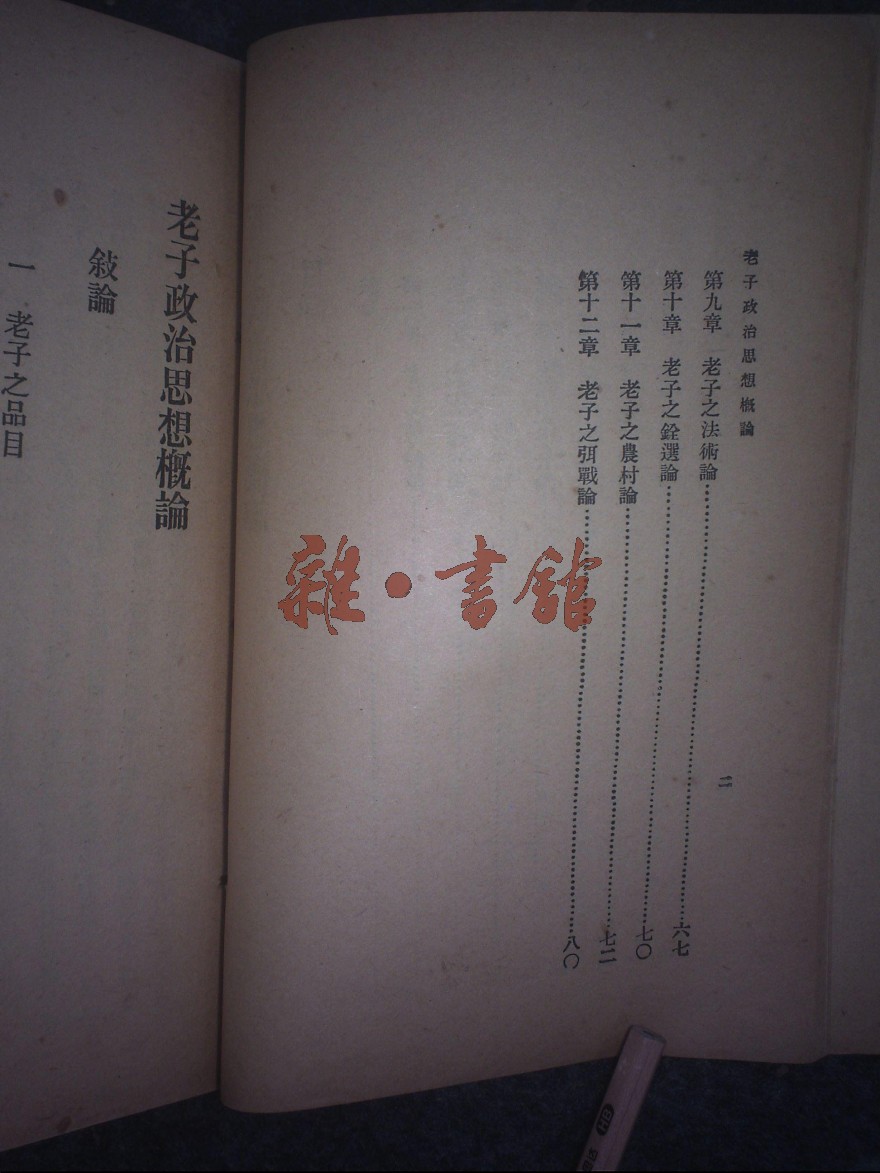 老子政治思想概論
二
第九章 老子之法術論⋯⋯⋯⋯⋯⋯⋯⋯⋯⋯六七
第十章 老子之銓選論⋯⋯⋯⋯⋯⋯⋯⋯⋯⋯七〇
第十一章 老子之農村論⋯⋯⋯⋯⋯⋯⋯⋯⋯⋯七二
第十二章 老子之弭戰論⋯⋯⋯⋯⋯⋯⋯⋯⋯⋯八〇
老子政治思想概論
敍論
一 老子之品目
雜·書館
HB